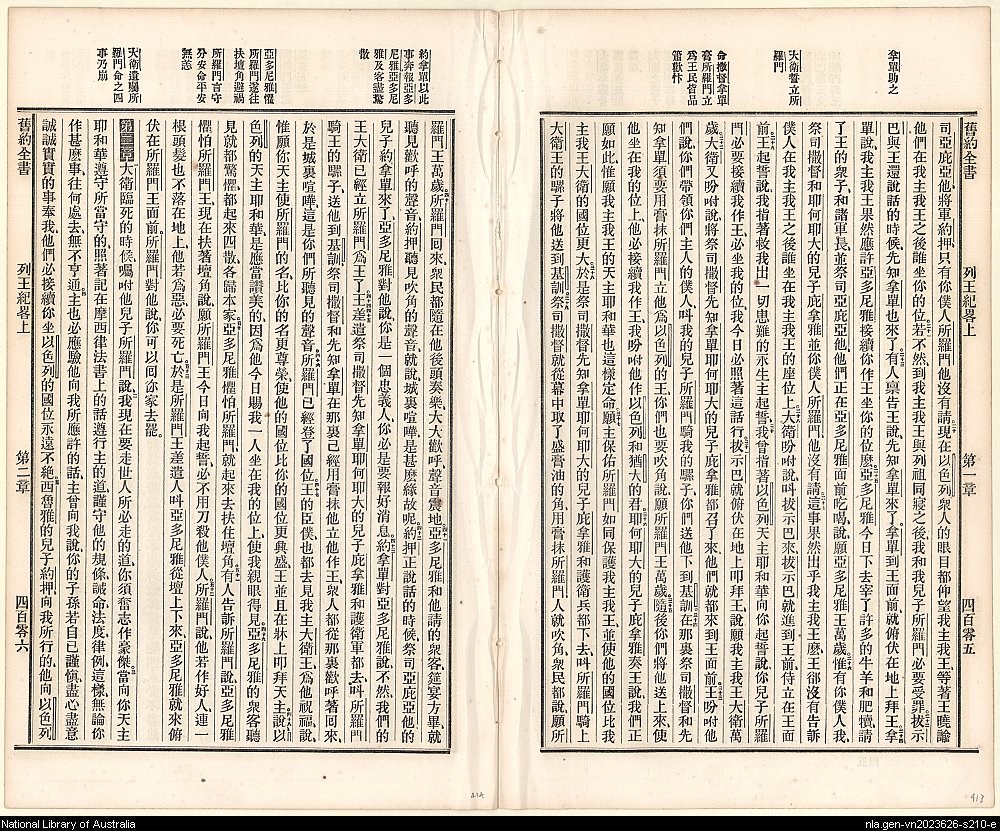 舊約全書 列王紀畧上 第一章 四百零五
拿單助之
大衛誓立所
羅門
命撒督拿單
膏所羅門立
爲王民皆品
管歡忭
司亞庇亞他將軍約押只有你僕人所羅門他沒有請現在以色列衆人的眼目都仰望我主我王等著王曉諭
他們在我主我王之後誰坐在你的位若不然到我主我王與列祖同寢之後我和我兒子所羅門必要受罪拔示
巴與王還說話的時候先知拿單也來了有人稟告王說先知拿單來了拿單到王面前就俯伏在地上拜王拿
單說我主我王果然應許亞多尼雅接續你作王坐你的位麽亞多尼雅今日下去宰了許多的牛羊和肥犢請
了王的衆子和諸軍長並祭司亞庇亞他他們正在亞多尼雅面前吃喝說願亞多尼雅王萬歲惟有你僕人我
祭司撒督和耶何耶大的兒子庇拿雅並你僕人所羅門他沒有請這事果然出乎我主我王麽王卻沒有告訴
僕人在我主我王之後誰坐在我主我王的座位上大衛吩咐說叫拔示巴來拔示巴就進到王前侍立在王面
前王起誓說我指著救我出一切患難的永生主起誓我曾指著以色列天主耶和華向你起誓說你兒子所羅
門必要接續我作王必坐我的位我今日必照著這話行拔示巴就俯伏在地上叩拜王說願我主我王大衛萬
歲大衛又吩咐說將祭司撒督先知拿單耶何耶大的兒子庇拿雅都召了來他們就都來到王面前王吩咐他
們說你們帶領你們主人的僕人叫我的兒子所羅門騎我的騾子你們送他下到基訓在那裏祭司撒督和先
知拿單須要用膏抹所羅門立他爲以色列的王你們也要吹角說願所羅門王萬歲隨後你們將他送上來使
他坐在我的位上他必接續我作王我吩咐他作以色列和猶大的君耶何耶大的兒子庇拿雅奏王說我們正
願如此惟願我主我王的天主耶和華也這樣定命願主保佑所羅門如同保護我主我王並使他的國位比我
主我王大衛的國位更大於是祭司撒督先知拿單耶何耶大的兒子庇拿雅和護衛兵都下去叫所羅門騎上
大衛王的騾子將他送到基訓祭司撒督就從幕中取了盛膏油的角用膏抹所羅門人就吹角衆民都說願所
約拿單以此
事奔報亞多
尼雅亞多尼
雅及客盡驚
散
亞多尼雅懼
所羅門遂往
扶壇角避禍
所羅門言守
分安命平安
無恙
大衛遺囑所
羅門命之四
事乃崩
羅門王萬歲所羅門回來衆民都隨在他後頭奏樂大大歡呼聲音震地亞多尼雅和他請的衆客筵宴方畢就
聽見歡呼的聲音約押聽見吹角的聲音就說城裏喧嘩是甚麽緣故呢約押正說話的時候祭司亞庇亞他的
兒子約拿單來了亞多尼雅對他說你是一個忠義人你必是要報好消息約拿單對亞多尼雅說不然我們的
主大衛王已經立所羅門爲王了王差遣祭司撒督先知拿單耶何耶大的兒子庇拿雅和護衛軍都去叫所羅門
騎王的騾子送他到基訓祭司撒督和先知拿單在那裏已經用膏抹他立他作王衆人都從那裏歡呼著回來
於是城裏喧嘩這是你們所聽見的聲音所羅門已經登了國位王的臣僕也都去見我主大衛王爲他祝福說
惟願你天主使所羅門的名比你的名更尊榮使他的國位比你的國位更興盛王並且在牀上叩拜天主說以
色列的天主耶和華是應當讚美的因爲他今日賜我一人坐在我的位上使我親眼得見亞多尼雅的衆客聽
見就都驚懼都起來四散各歸本家亞多尼雅懼怕所羅門就起來去扶住壇角有人告訴所羅門說亞多尼雅
懼怕所羅門王現在扶著壇角說願所羅門王今日向我起誓必不用刀殺他僕人所羅門說他若作好人連一
根頭髮也不落在地上他若爲惡必要死亡於是所羅門王差遣人叫亞多尼雅從壇上下來亞多尼雅就來俯
伏在所羅門王面前所羅門對他說你可以回你家去罷
第二章大衛臨死的時候囑咐他兒子所羅門說我現在要走世人所必走的道你須奮志作豪傑當向你天主
耶和華遵守所當守的照著記在摩西律法書上的話遵行主的道謹守他的規條誡命法度律例這樣無論你
作甚麽事往何處去無不亨通主也必應驗他向我所應許的話主曾向我說你的子孫若自已謹愼盡心盡意
誠誠實實的事奉我他們必接續你坐以色列的國位永遠不絕西魯雅的兒子約押向我所行的他向以色列
舊約全書 列王紀畧上 第二章 四百零六
413
National Library of Australia
nla.gen-vn2023626-s210-e